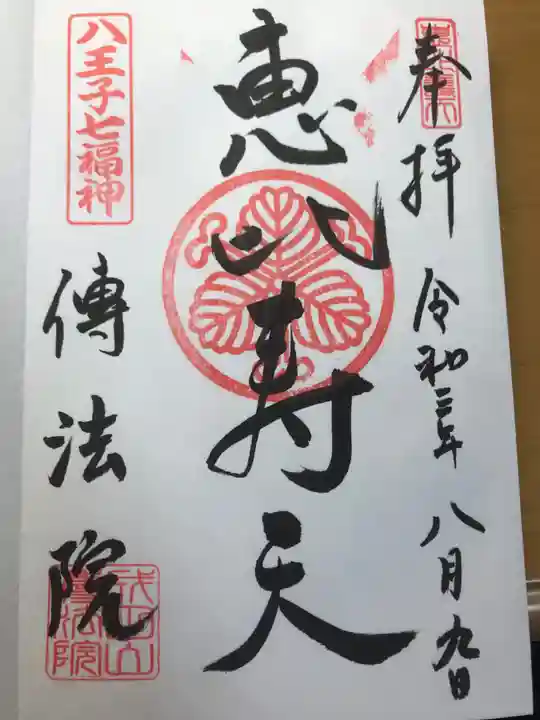 奉拝 令和三年 八月九日
恵比寿天
八王子七福神
傳法院